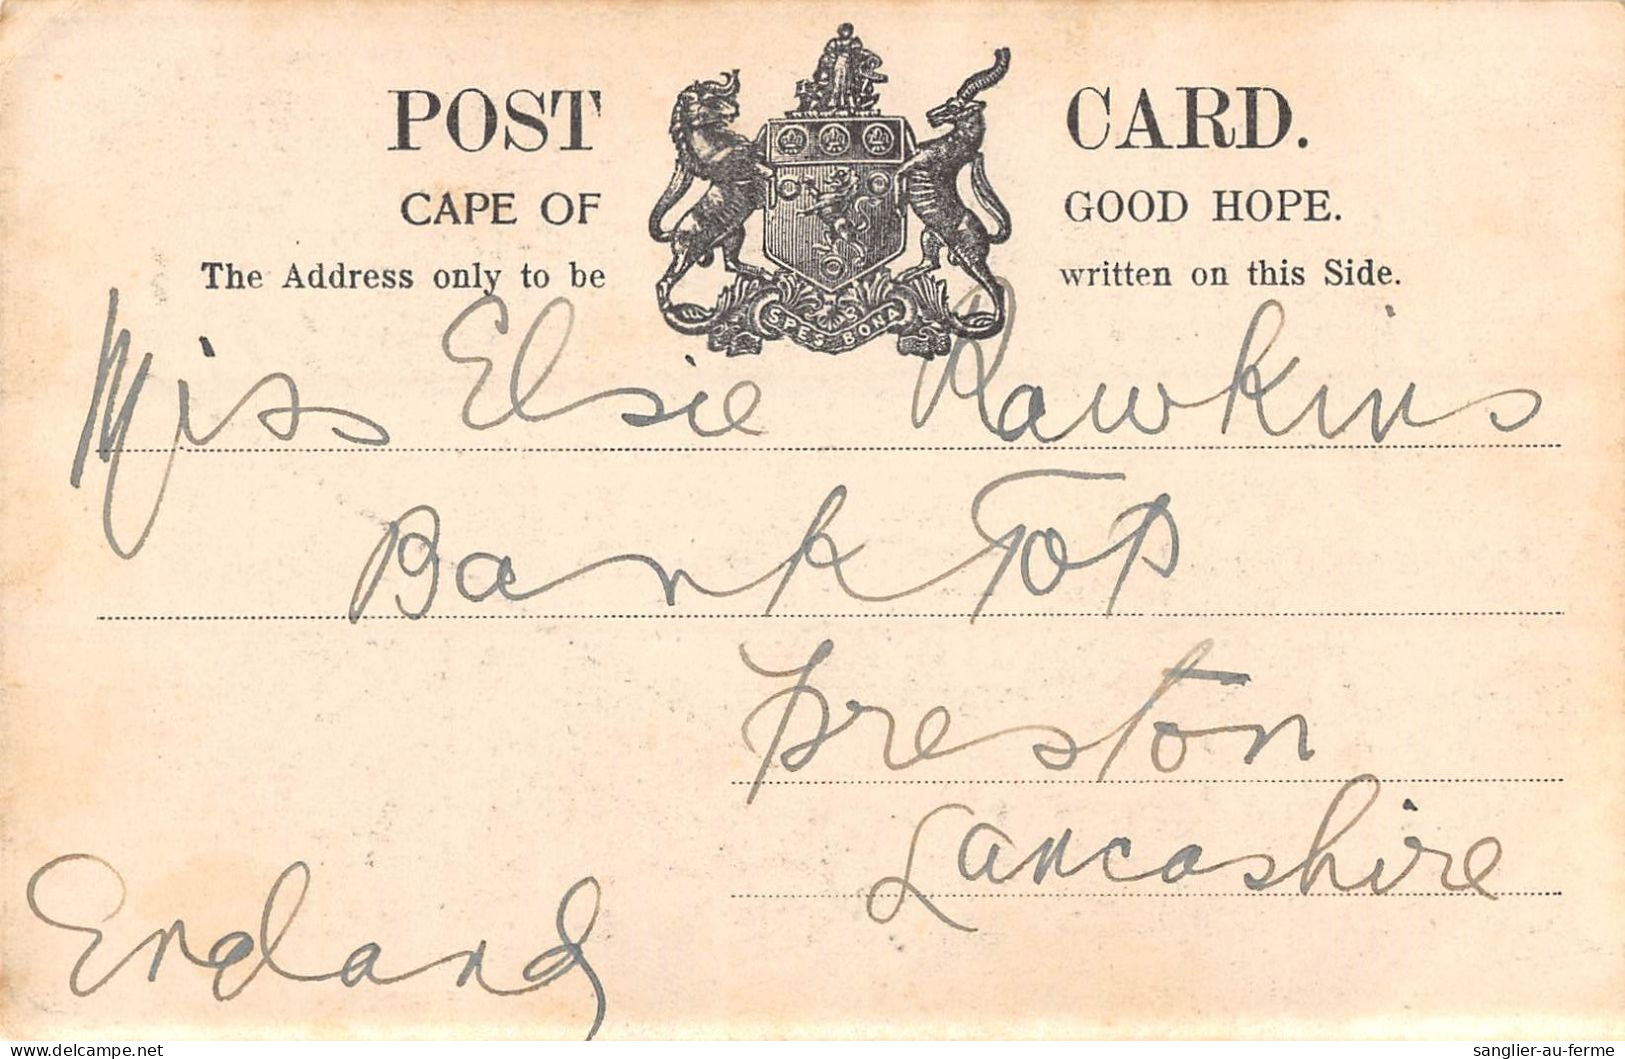 POST CARD.
CAPE OF GOOD HOPE.
The Address only to be written on this Side.
SPES BONA
Miss Elsie Rawkins
Bank Top
Preston
Lancashire
England
www.delcampe.net
sanglier-au-ferme